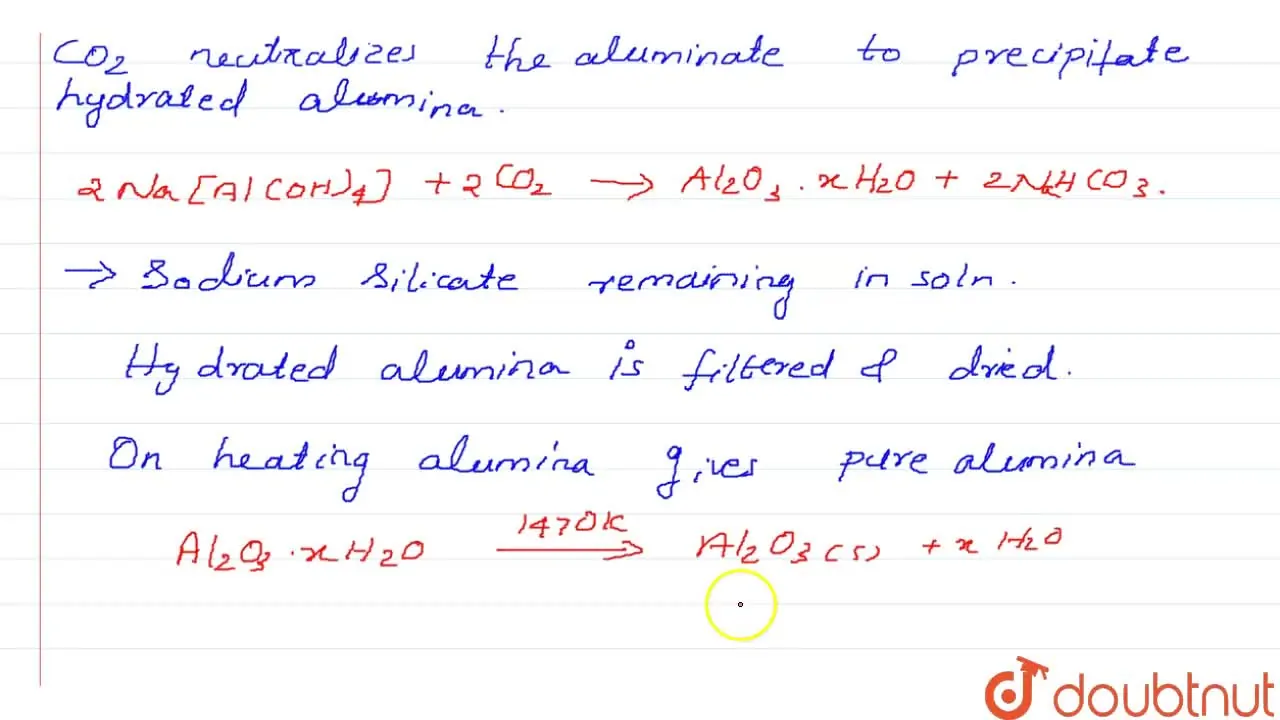 CO2 neutralizes the aluminate to precipitate
hydrated alumina.
2Na[Al(OH)4] + 2CO2 → Al2O3.xH2O + 2NaHCO3.
→ Sodium Silicate remaining in soln.
Hydrated alumina is filtered & dried.
On heating alumina gives pure alumina
1470K
Al2O3.xH2O → Al2O3(s) + x H2O
doubtnut